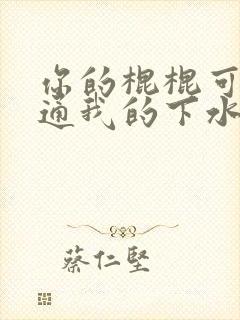 你的棍棍可
通我的下水
蔡仁堅